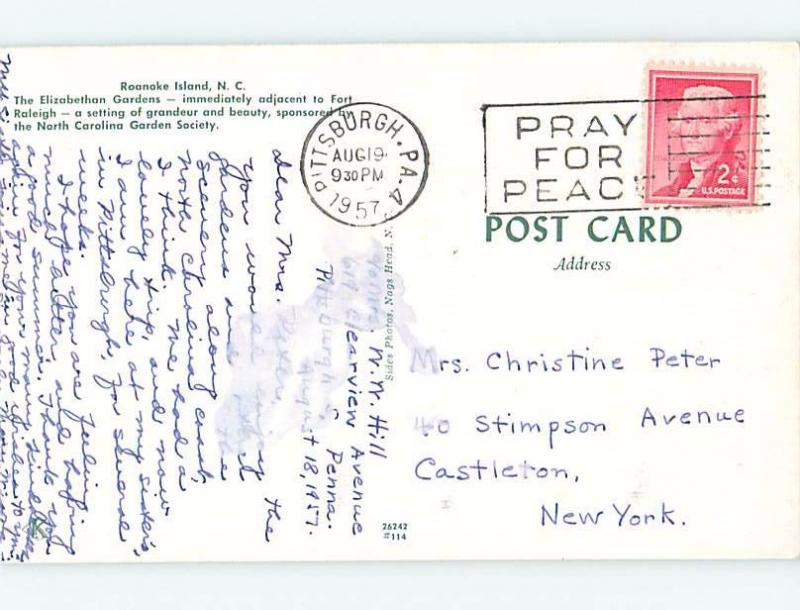 Roanoke Island, N. C.
The Elizabethan Gardens — immediately adjacent to Fort
Raleigh — a setting of grandeur and beauty, sponsored by
the North Carolina Garden Society.
PITTSBURGH, PA. 4
AUG 19
9 30 PM
1957
PRAY
FOR
PEACE
2¢
U.S. POSTAGE
POST CARD
Address
Mrs. Christine Peter
40 Stimpson Avenue
Castleton,
New York.
Sides Photos, Nags Head, N. C.
26242
#114
W. W. Hill
Clearview Avenue
Pittsburgh, Penna.
August 18, 1957.
Dear Mrs.
You would enjoy the
gardens and the
scenery along coast,
North Carolina
I think. We had a
lovely trip, and now
I am here at my sister's,
in Pittsburgh, for several
weeks.
I hope you are feeling
much better, and having
a good summer. Thank you
again for your many kindnesses
good wishes to you